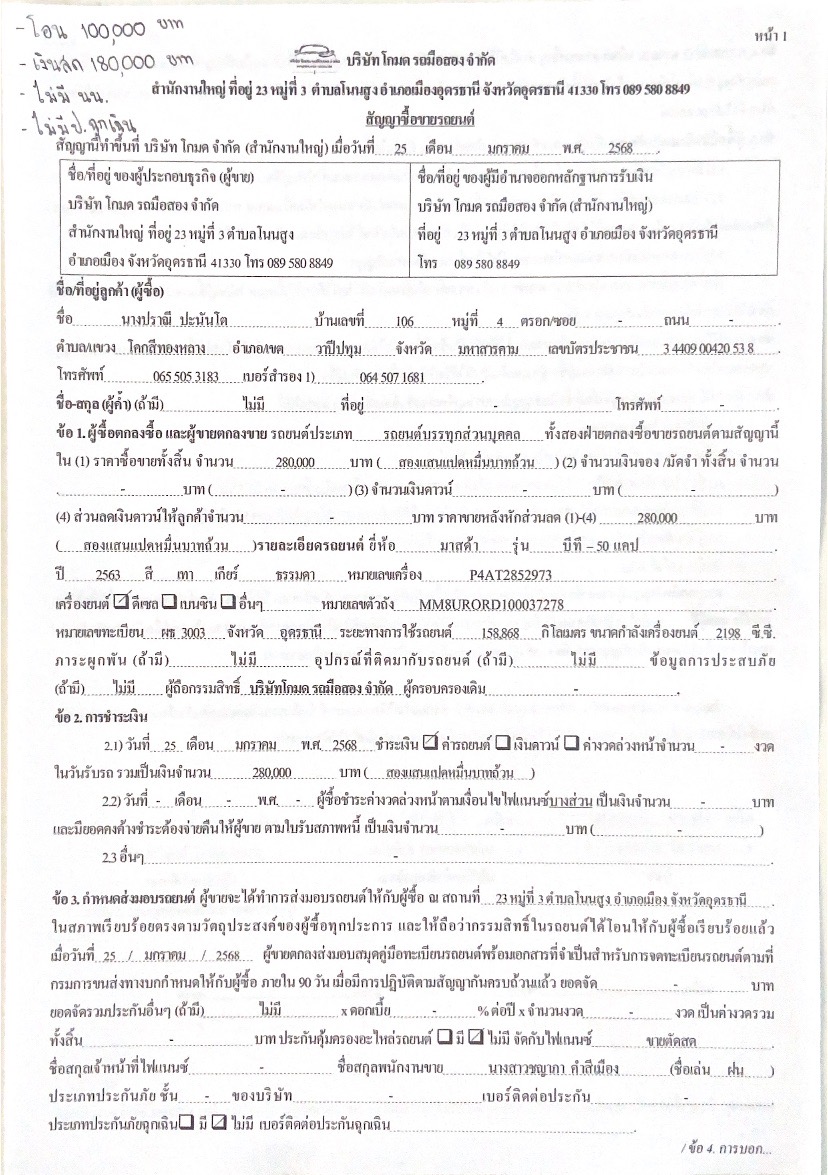 - โอน 100,000 บาท
- เงินสด 180,000 บาท
- ไม่มี นน.
- ไม่มีป.ฉุกเฉิน
หน้า 1
บริษัท โกมด รถมือสอง จำกัด
สำนักงานใหญ่ ที่อยู่ 23 หมู่ที่ 3 ตำบลโนนสูง อำเภอเมืองอุดรธานี จังหวัดอุดรธานี 41330 โทร 089 580 8849
สัญญาซื้อขายรถยนต์
สัญญานี้ทำขึ้นที่ บริษัท โกมด จำกัด (สำนักงานใหญ่) เมื่อวันที่ 25 เดือน มกราคม พ.ศ. 2568
ชื่อ/ที่อยู่ ของผู้ประกอบธุรกิจ (ผู้ขาย)
บริษัท โกมด รถมือสอง จำกัด
สำนักงานใหญ่ ที่อยู่ 23 หมู่ที่ 3 ตำบลโนนสูง
อำเภอเมือง จังหวัดอุดรธานี 41330 โทร 089 580 8849
ชื่อ/ที่อยู่ ของผู้มีอำนาจออกหลักฐานการรับเงิน
บริษัท โกมด รถมือสอง จำกัด (สำนักงานใหญ่)
ที่อยู่ 23 หมู่ที่ 3 ตำบลโนนสูง อำเภอเมือง จังหวัดอุดรธานี
โทร 089 580 8849
ชื่อ/ที่อยู่ลูกค้า (ผู้ซื้อ)
ชื่อ นางปราณี ปะนันโต บ้านเลขที่ 106 หมู่ที่ 4 ตรอก/ซอย - ถนน -
ตำบล/แขวง โคกสีทองหลาง อำเภอ/เขต วาปีปทุม จังหวัด มหาสารคาม เลขบัตรประชาชน 3 4409 00420 53 8
โทรศัพท์ 065 505 3183 เบอร์สำรอง 1) 064 507 1681
ชื่อ-สกุล (ผู้ค้ำ) (ถ้ามี) ไม่มี ที่อยู่ - โทรศัพท์ -
ข้อ 1. ผู้ซื้อตกลงซื้อ และผู้ขายตกลงขาย รถยนต์ประเภท รถยนต์บรรทุกส่วนบุคคล ทั้งสองฝ่ายตกลงซื้อขายรถยนต์ตามสัญญานี้
ใน (1) ราคาซื้อขายทั้งสิ้น จำนวน 280,000 บาท ( สองแสนแปดหมื่นบาทถ้วน ) (2) จำนวนเงินจอง /มัดจำ ทั้งสิ้น จำนวน
- บาท ( - ) (3) จำนวนเงินดาวน์ - บาท ( - )
(4) ส่วนลดเงินดาวน์ให้ลูกค้าจำนวน - บาท ราคาขายหลังหักส่วนลด (1)-(4) 280,000 บาท
( สองแสนแปดหมื่นบาทถ้วน )รายละเอียดรถยนต์ ยี่ห้อ มาสด้า รุ่น บีที – 50 แคป
ปี 2563 สี เทา เกียร์ ธรรมดา หมายเลขเครื่อง P4AT2852973
เครื่องยนต์ ☑ ดีเซล ☐ เบนซิน ☐ อื่นๆ หมายเลขตัวถัง MM8URORD100037278
หมายเลขทะเบียน ผธ 3003 จังหวัด อุดรธานี ระยะทางการใช้รถยนต์ 158,868 กิโลเมตร ขนาดกำลังเครื่องยนต์ 2198 ซี.ซี.
ภาระผูกพัน (ถ้ามี) ไม่มี อุปกรณ์ที่ติดมากับรถยนต์ (ถ้ามี) ไม่มี ข้อมูลการประสบภัย
(ถ้ามี) ไม่มี ผู้ถือกรรมสิทธิ์ บริษัทโกมด รถมือสอง จำกัด ผู้ครอบครองเดิม -
ข้อ 2. การชำระเงิน
2.1) วันที่ 25 เดือน มกราคม พ.ศ. 2568 ชำระเงิน ☑ ค่ารถยนต์ ☐ เงินดาวน์ ☐ ค่างวดล่วงหน้าจำนวน - งวด
ในวันรับรถ รวมเป็นเงินจำนวน 280,000 บาท ( สองแสนแปดหมื่นบาทถ้วน )
2.2) วันที่ - เดือน - พ.ศ. - ผู้ซื้อชำระค่างวดล่วงหน้าตามเงื่อนไขไฟแนนซ์บางส่วน เป็นเงินจำนวน - บาท
และมียอดคงค้างชำระต้องจ่ายคืนให้ผู้ขาย ตามใบรับสภาพหนี้ เป็นเงินจำนวน - บาท ( - )
2.3 อื่นๆ -
ข้อ 3. กำหนดส่งมอบรถยนต์ ผู้ขายจะได้ทำการส่งมอบรถยนต์ให้กับผู้ซื้อ ณ สถานที่ 23 หมู่ที่ 3 ตำบลโนนสูง อำเภอเมือง จังหวัดอุดรธานี
ในสภาพเรียบร้อยตรงตามวัตถุประสงค์ของผู้ซื้อทุกประการ และให้ถือว่ากรรมสิทธิ์ในรถยนต์ได้โอนให้กับผู้ซื้อเรียบร้อยแล้ว
เมื่อวันที่ 25 / มกราคม / 2568 ผู้ขายตกลงส่งมอบสมุดคู่มือทะเบียนรถยนต์พร้อมเอกสารที่จำเป็นสำหรับการจดทะเบียนรถยนต์ตามที่
กรมการขนส่งทางบกกำหนดให้กับผู้ซื้อ ภายใน 90 วัน เมื่อมีการปฏิบัติตามสัญญากันครบถ้วนแล้ว ยอดจัด - บาท
ยอดจัดรวมประกันอื่นๆ (ถ้ามี) ไม่มี x ดอกเบี้ย - % ต่อปี x จำนวนงวด - งวด เป็นค่างวดรวม
ทั้งสิ้น - บาท ประกันคุ้มครองอะไหล่รถยนต์ ☐ มี ☑ ไม่มี จัดกับไฟแนนซ์ ขายตัดสด
ชื่อสกุลเจ้าหน้าที่ไฟแนนซ์ - ชื่อสกุลพนักงานขาย นางสาวชญาภา คำสีเมือง (ชื่อเล่น ฝน )
ประเภทประกันภัย ชั้น - ของบริษัท - เบอร์ติดต่อประกัน -
ประเภทประกันภัยฉุกเฉิน ☐ มี ☑ ไม่มี เบอร์ติดต่อประกันฉุกเฉิน
/ ข้อ 4. การบอก...